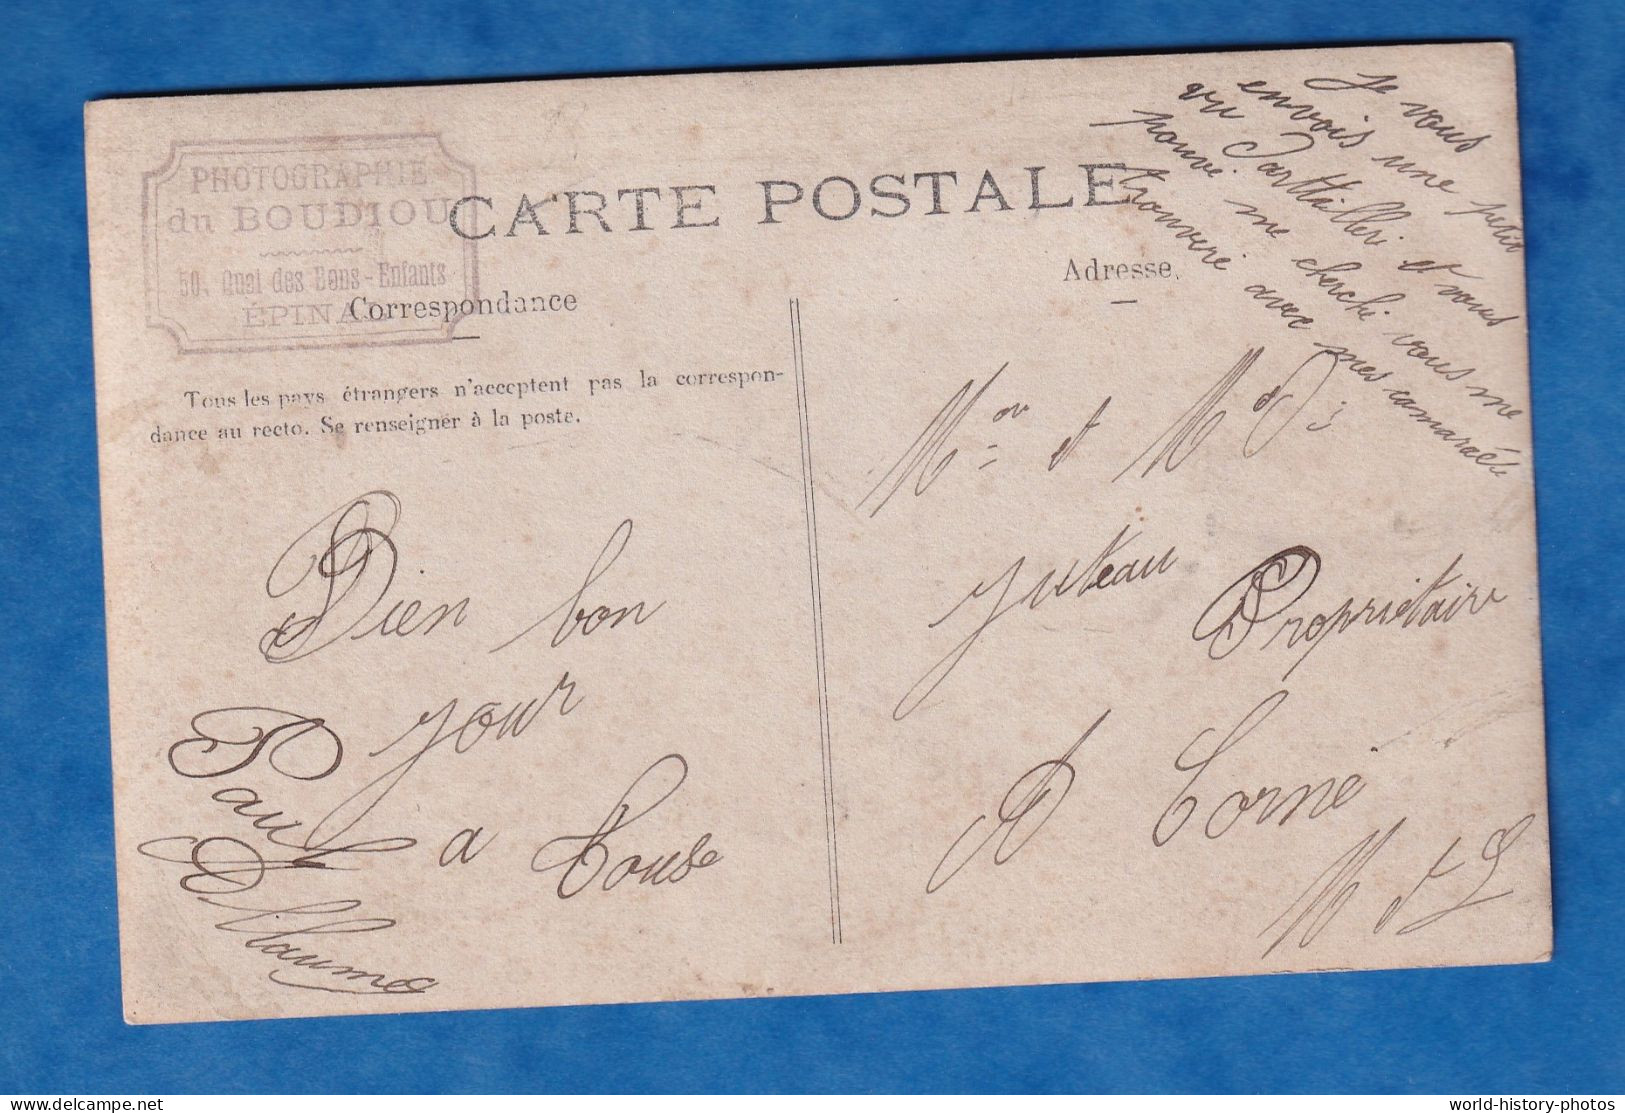 PHOTOGRAPHIE
du BOUDIOU
50, Quai des Bons-Enfants
ÉPINAL
CARTE POSTALE
Correspondance
Adresse.
Tous les pays étrangers n'acceptent pas la correspon-
dance au recto. Se renseigner à la poste.
Je vous
envois une petit
vu Sarttilleri et vous
pouvé me cherché vous me
trouveré avec mes camaradé
Bien bon
jour
a Touse
Paul
Allaume
Mr et Md
Juteau Propriétaire
A Corné
M et L
world-history-photos